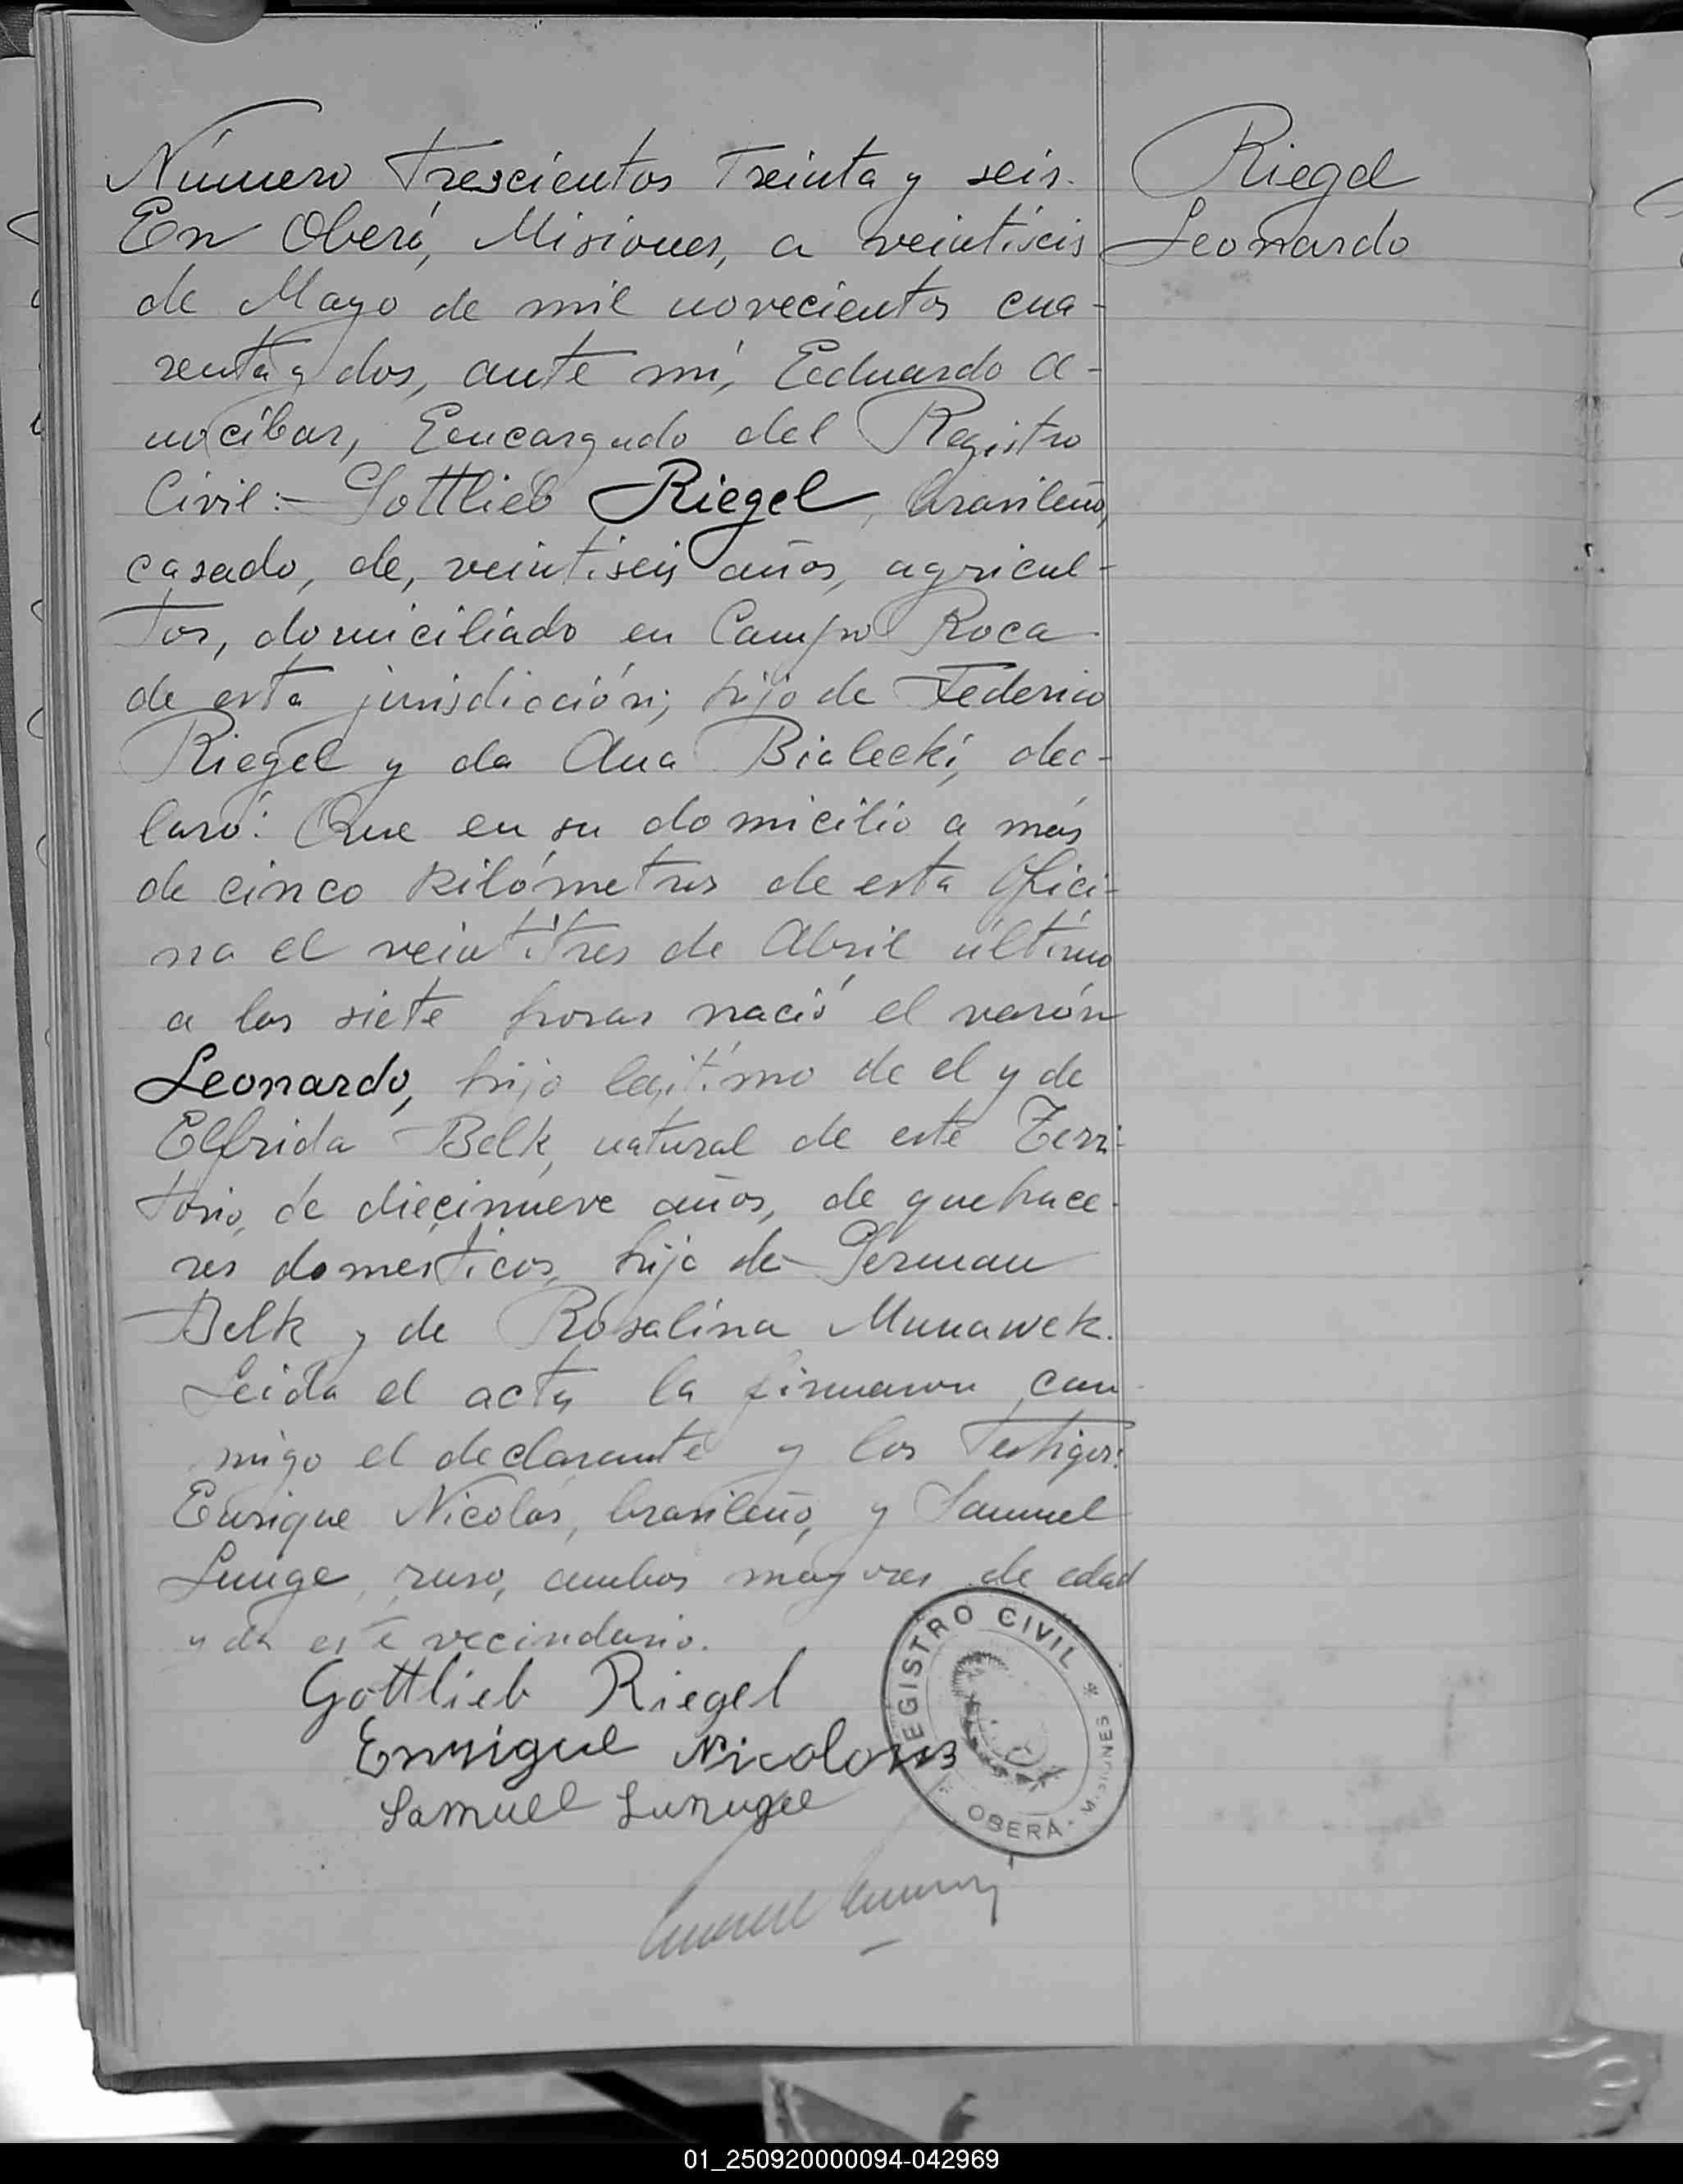 Número Trescientos Treinta y seis.
En Oberá, Misiones, a veintiseis
de Mayo de mil novecientos cua-
renta y dos, ante mí, Eduardo A-
nocíbar, Encargado del Registro
Civil:- Gottlieb Riegel, brasileño,
casado, de, veintiseis años, agricul-
tor, domiciliado en Campo Roca
de esta jurisdicción; hijo de Federico
Riegel y da Ana Bialecki, dec-
laró: Que en su domicilio a más
de cinco kilómetros de esta Ofici-
na el veintitres de Abril último
a las siete horas nació el varón
Leonardo, hijo legítimo de el y de
Elfrida Belk, natural de este Terri-
torio, de diecinueve años, de quehace-
res domesticos, hija de German
Belk y de Rosalina Munawek.
Leida el acta la firmaron con-
migo el declarante y los Testigos:
Enrique Nicolás, brasileño, y Samuel
Lunge, ruso, ambos mayores de edad
y de este vecindario.
Gottlieb Riegel
Enrrigue Nicolaus
Samuel
REGISTRO CIVIL * MISIONES
* OBERÁ -
Riegel
Leonardo
01_250920000094-042969